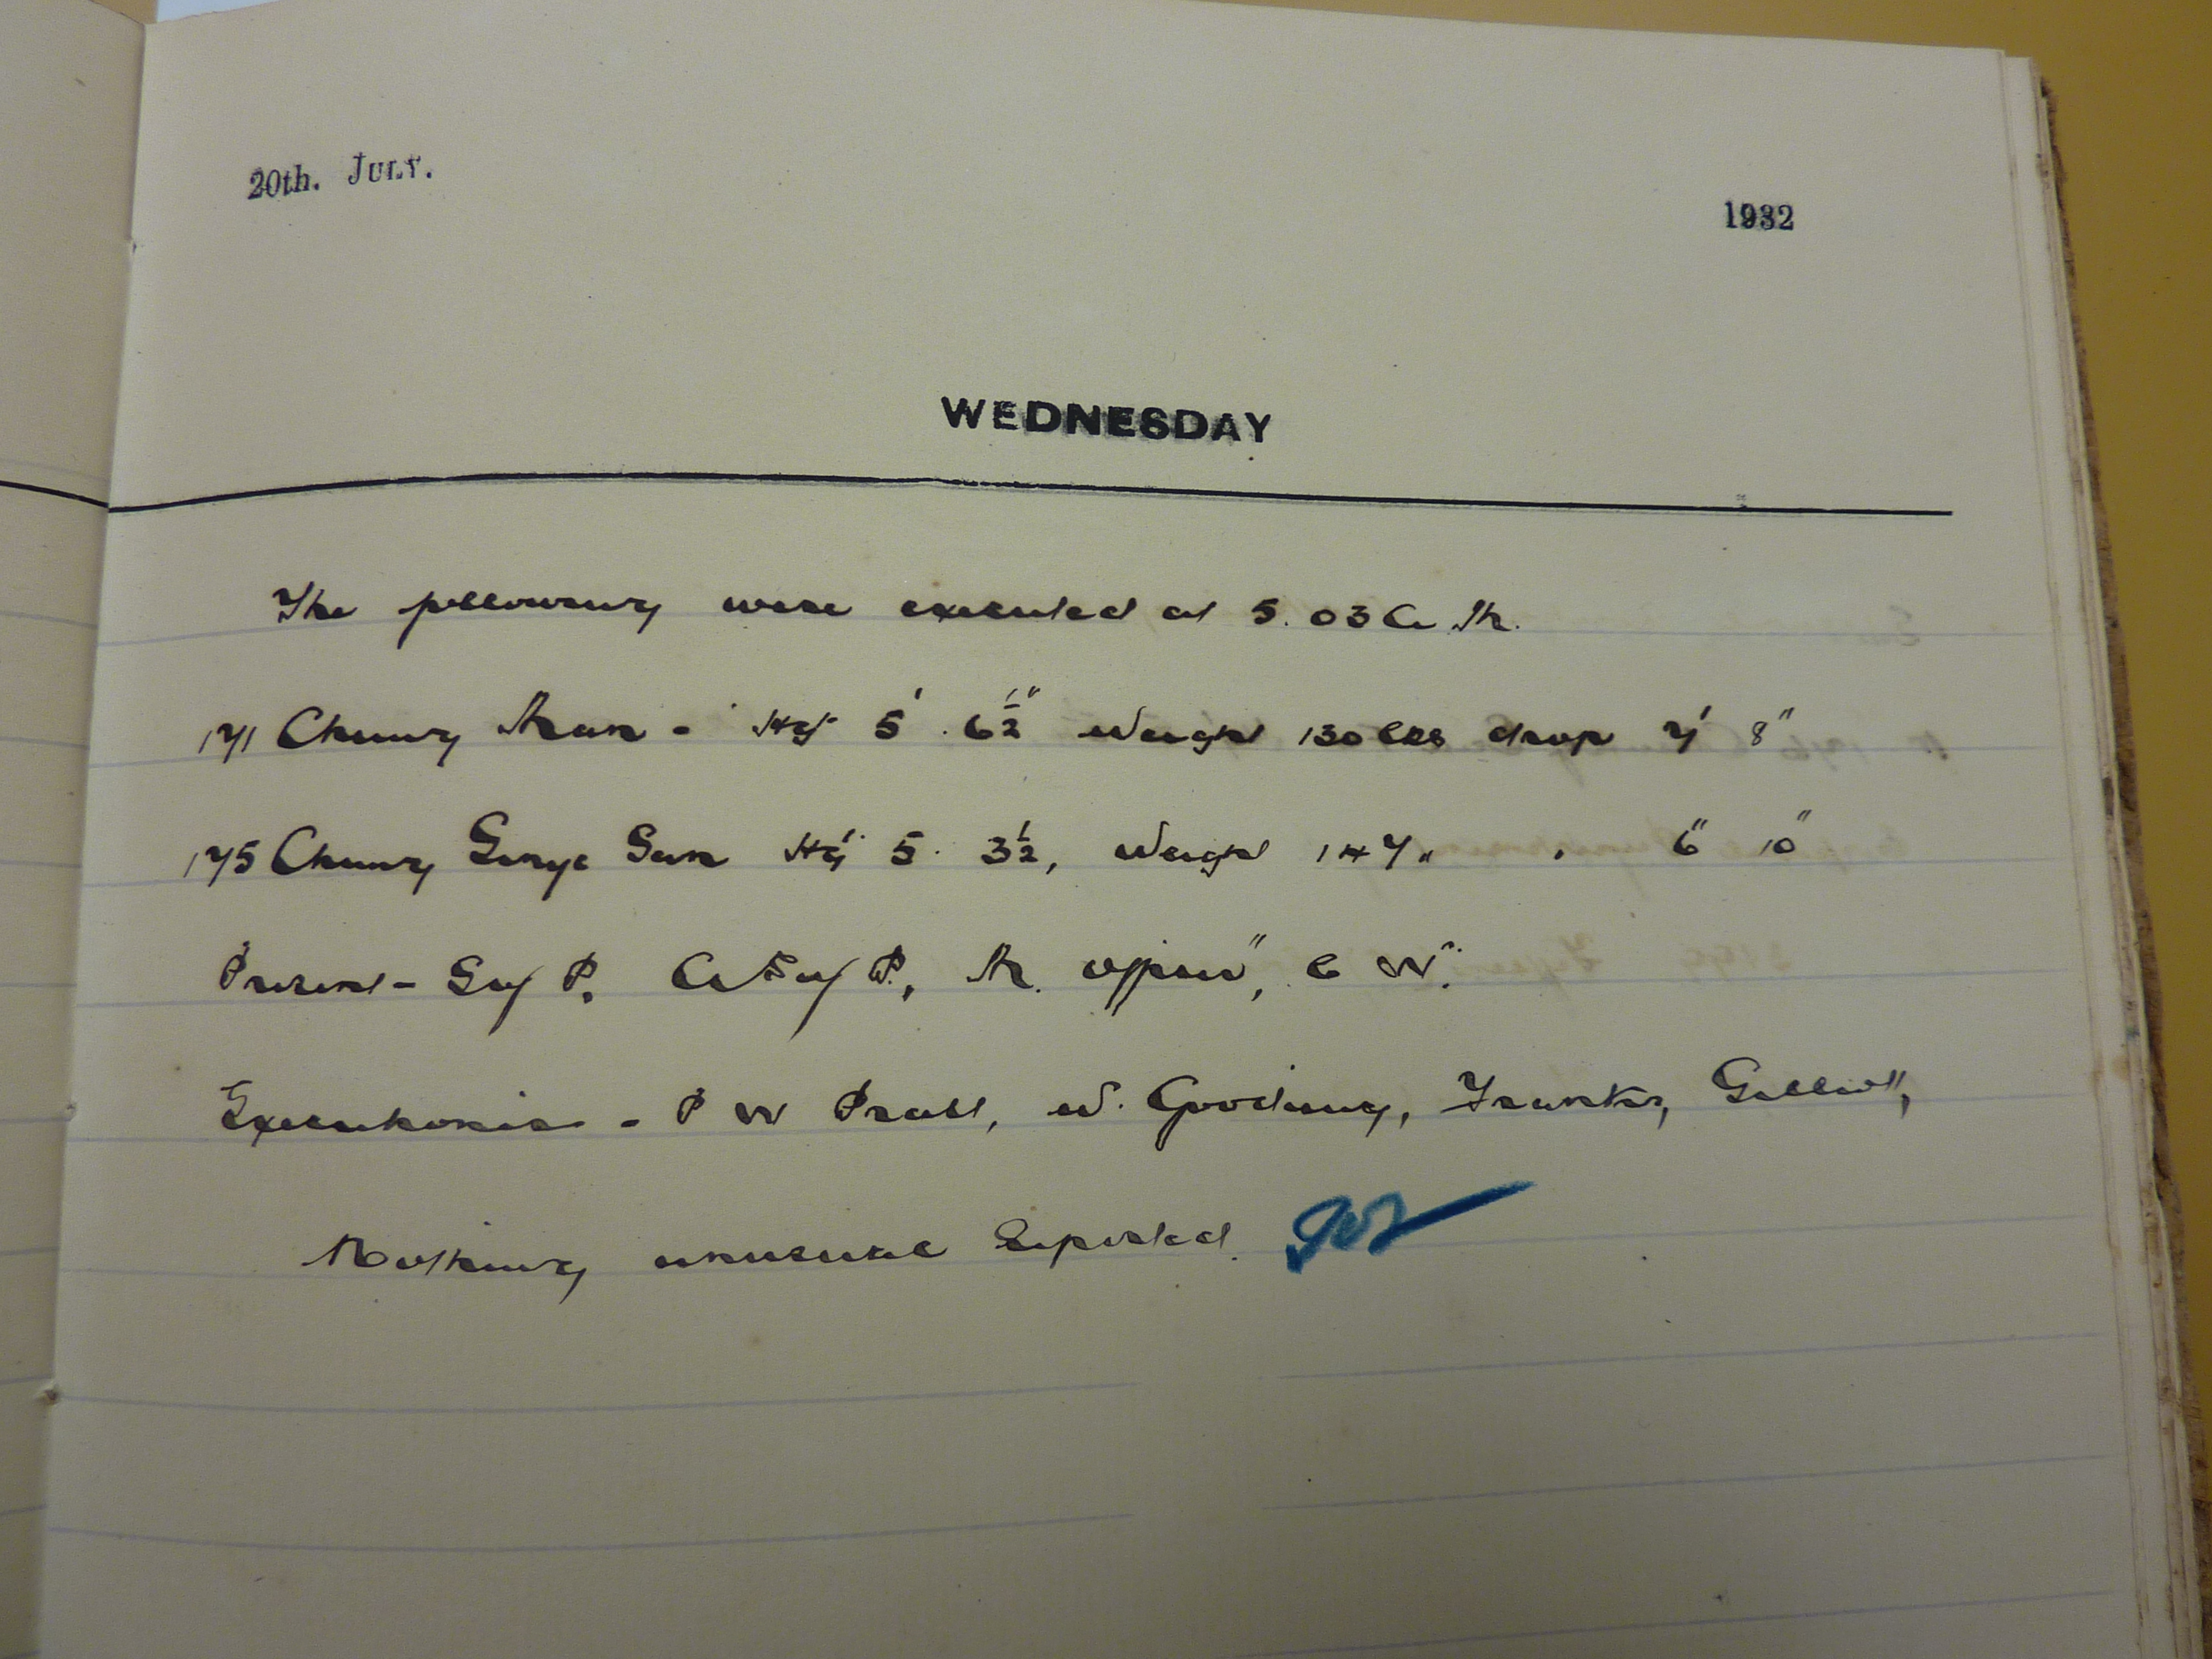 20th. JULY.
1932
WEDNESDAY
The following were executed at 5.03 A.M.
171 Chung Man - Hgt 5' . 6½" Weight 130 lbs drop 7' 8"
175 Chung Sun Hgt 5. 3½, Weight 147 " . 6" 10"
Present - Suptf P. P., M. Officer, C W.
Executioners - P W Pratt, W. Gooding,
Nothing unusual Reported.